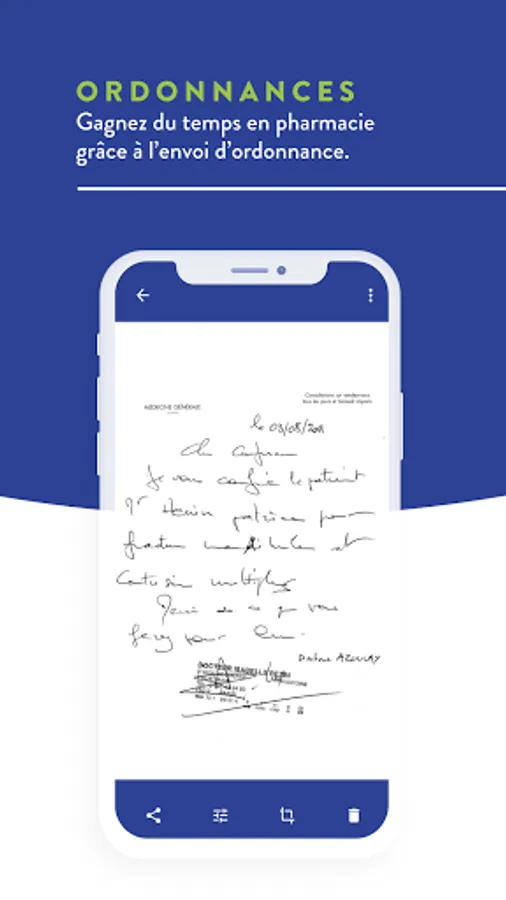 ORDONNANCES
Gagnez du temps en pharmacie
grâce à l'envoi d'ordonnance.
MÉDECINE GÉNÉRALE
Consultations sur rendez-vous
le 03/08/2011
Cher Confrère
Je vous confie le patient
Mr
pour
fracture et
Contusion multiples
Merci de ce que vous
ferez pour lui.
AZOULAY
DOCTEUR